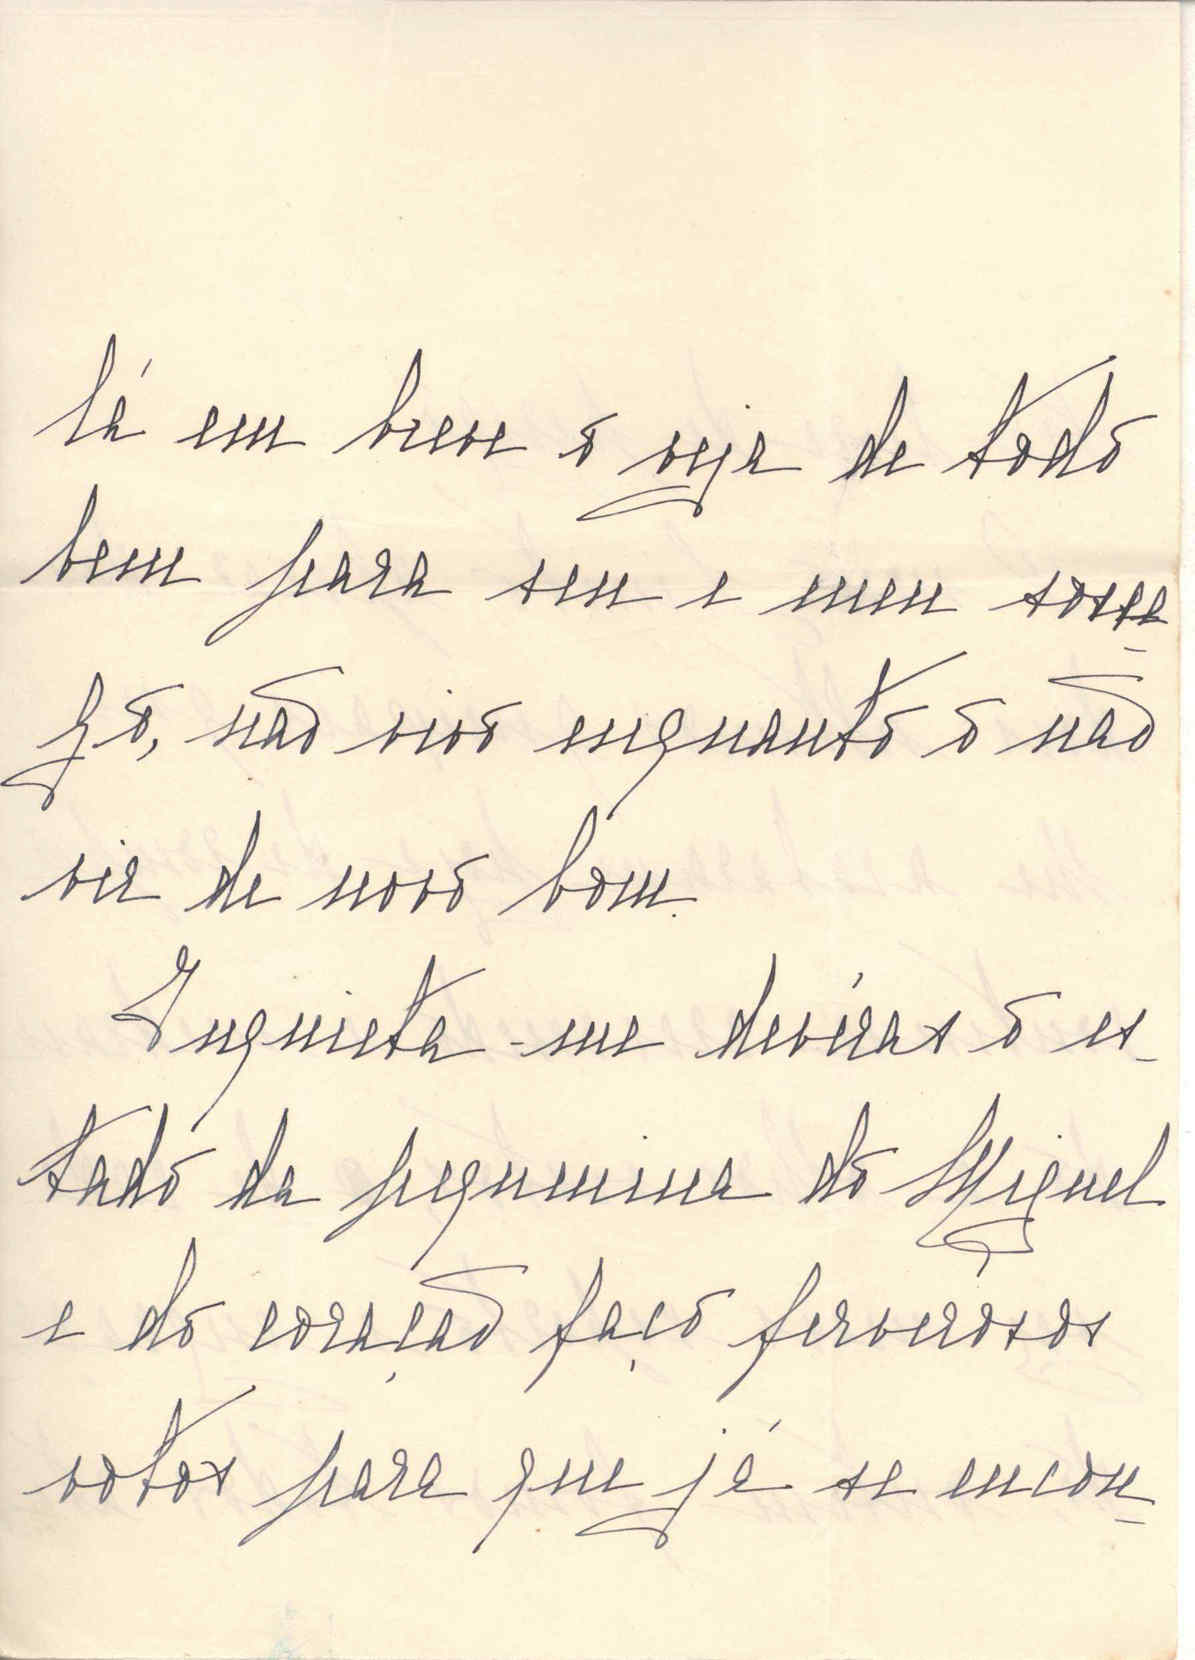 lá em breve o veja de todo
bem para seu e meu sosse
go, não vivo enquanto o não
vir de novo bom.
Inquieta-me devéras o es-
tado da pequenina do Miguel
e do coração faço ferverosos
votos para que já se encon-